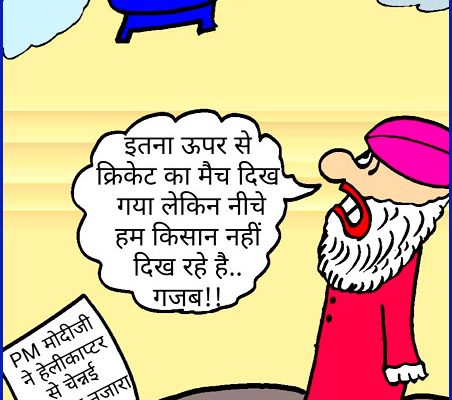 इतना ऊपर से
क्रिकेट का मैच दिख
गया लेकिन नीचे
हम किसान नहीं
दिख रहे है..
गजब!!
PM मोदीजी
ने हेलीकाप्टर
से चेन्नई
नजारा